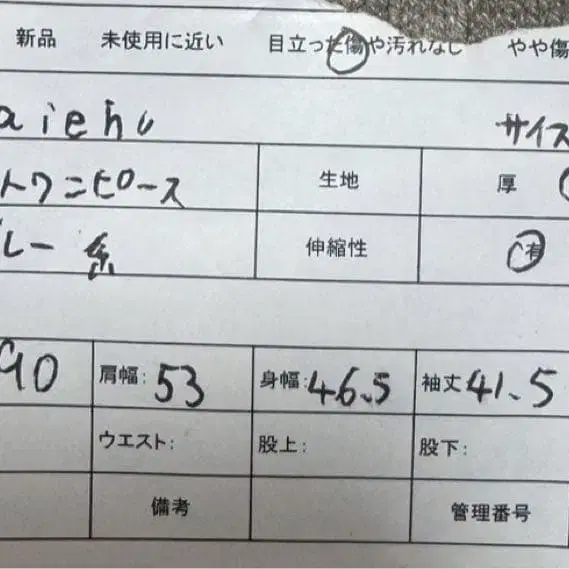 新品 未使用に近い 目立った傷や汚れなし やや傷
aiehu サイズ
トワンピース 生地 厚
ルー系 伸縮性 有
90 肩幅: 53 身幅: 46.5 袖丈 41.5
ウエスト: 股上: 股下:
備考 管理番号